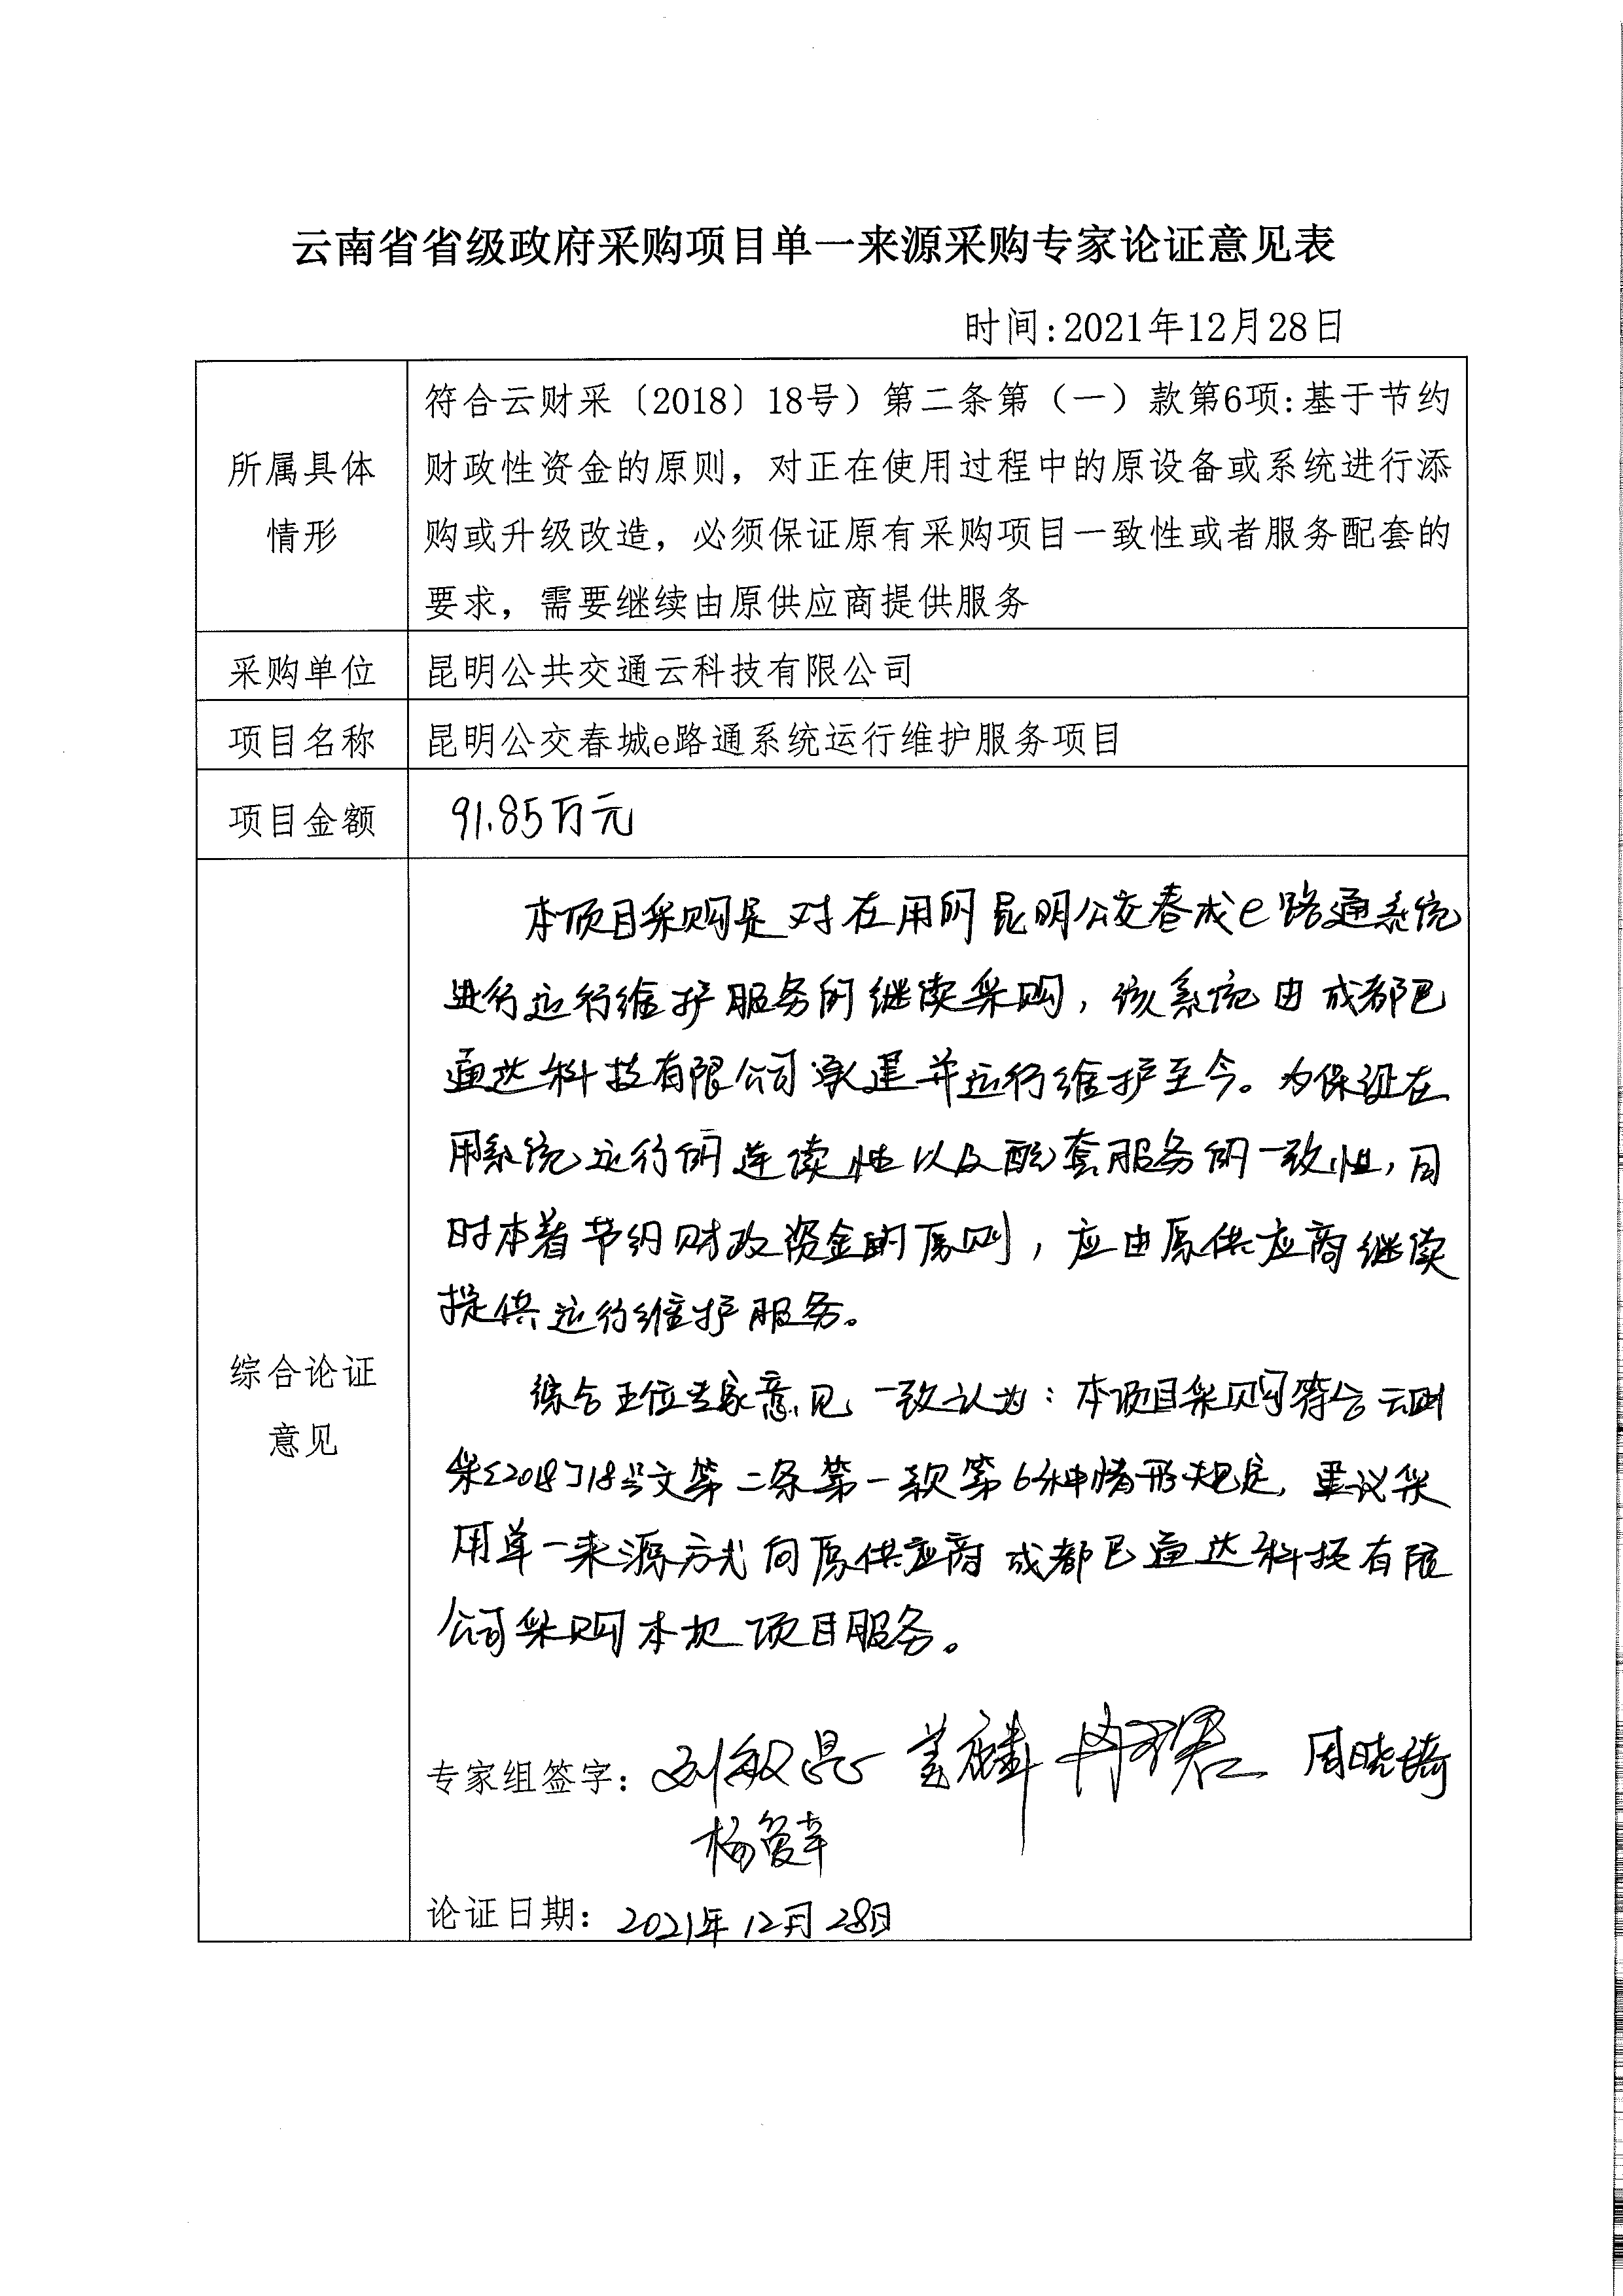 云南省省级政府采购项目单一来源采购专家论证意见表
时间:2021年12月28日
所属具体
情形
符合云财采〔2018〕18号）第二条第（一）款第6项:基于节约
财政性资金的原则，对正在使用过程中的原设备或系统进行添
购或升级改造，必须保证原有采购项目一致性或者服务配套的
要求，需要继续由原供应商提供服务
采购单位
昆明公共交通云科技有限公司
项目名称
昆明公交春城e路通系统运行维护服务项目
项目金额
91.85万元
综合论证
意见
本项目采购是对在用的昆明公交春城e路通系统
进行运行维护服务的继续采购，该系统由成都巴
通达科技有限公司承建并运行维护至今。为保证在
用系统运行的连续性以及配套服务的一致性，同
时本着节约财政资金的原则，应由原供应商继续
提供运行维护服务。
综合五位专家意见一致认为：本项目采购符合云财
采〔2018〕18号文第二条第一款第6种情形规定，建议采
用单一来源方式向原供应商成都巴通达科技有限
公司采购本次项目服务。
专家组签字：刘敏昆 姜麟 周晓琦
杨爱幸
论证日期：2021年12月28日